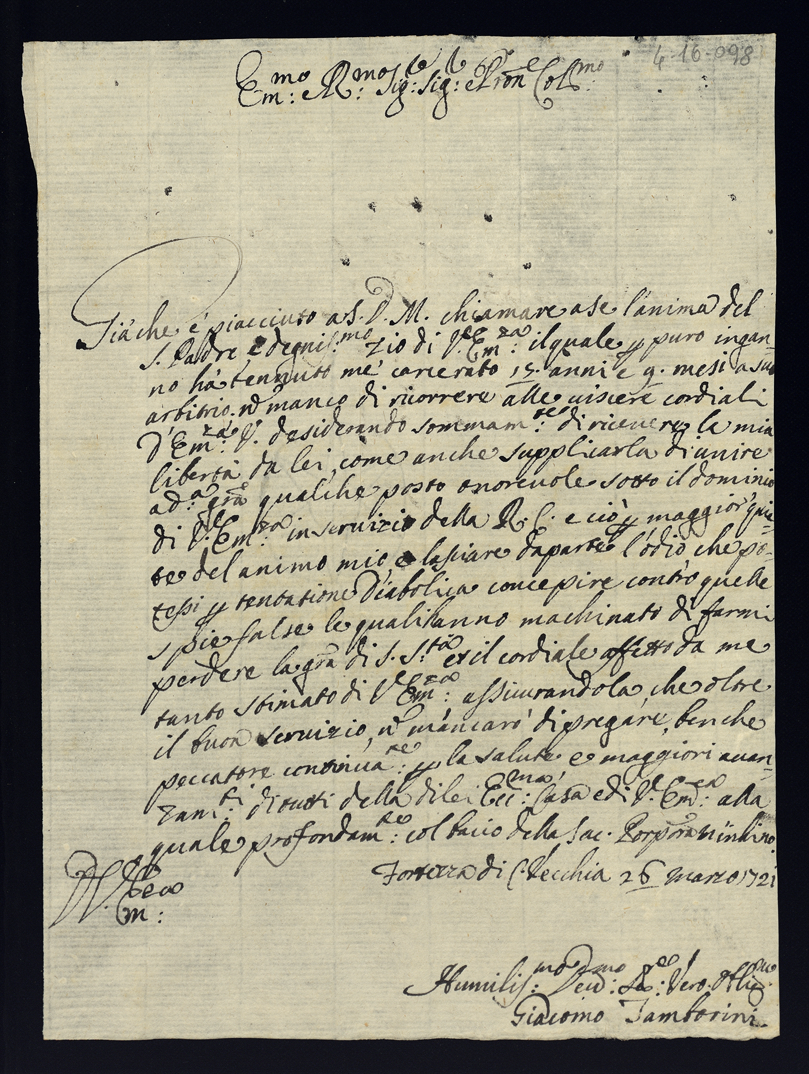 4-16-098
Em:mo e R:mo Sig: Sig: e Pron Col:mo
Già che è piacciuto a S. D. M. chiamare a se l'anima del
S. Padre e degnis:mo zio di V. Em:za il quale p puro ingan-
no hà tennuto me carcerato 15. anni e 9. mesi a suo
arbitrio. nõ manco di ricorrere alle viscere cordiali
d'Em:za V. desiderando sommam:te di ricevere la mia
libertà da lei, come anche supplicarla di unire
ad:a gra qualche posto onorevole sotto il dominio
di V. Em:za in servizio della R. C. e ciò p maggior quie-
te del animo mio, e lasciare daparte l'odio che po-
tessi p tentatione Diabolica concepire contro quelle
spie false le quali hanno machinato di farmi
perdere la gra di S. S:tà et il cordiale affetto da me
tanto stimato di V. Em:za assicurandola che oltre
il buon servizio, nõ mancarò di pregare, ben che
peccatore continua:te p la salute e maggiori avan-
zam:ti di tutti della di lei Ecc:ma Casa e di V. Em:za alla
quale profondam:te col bacio della Sac. Porpora m'inchino
Fortezza di C. Vecchia 26 marzo 1721
V. Em:
Humilis:mo Dev:mo Se: Vero. Oblig:mo
Giacomo Tamborini